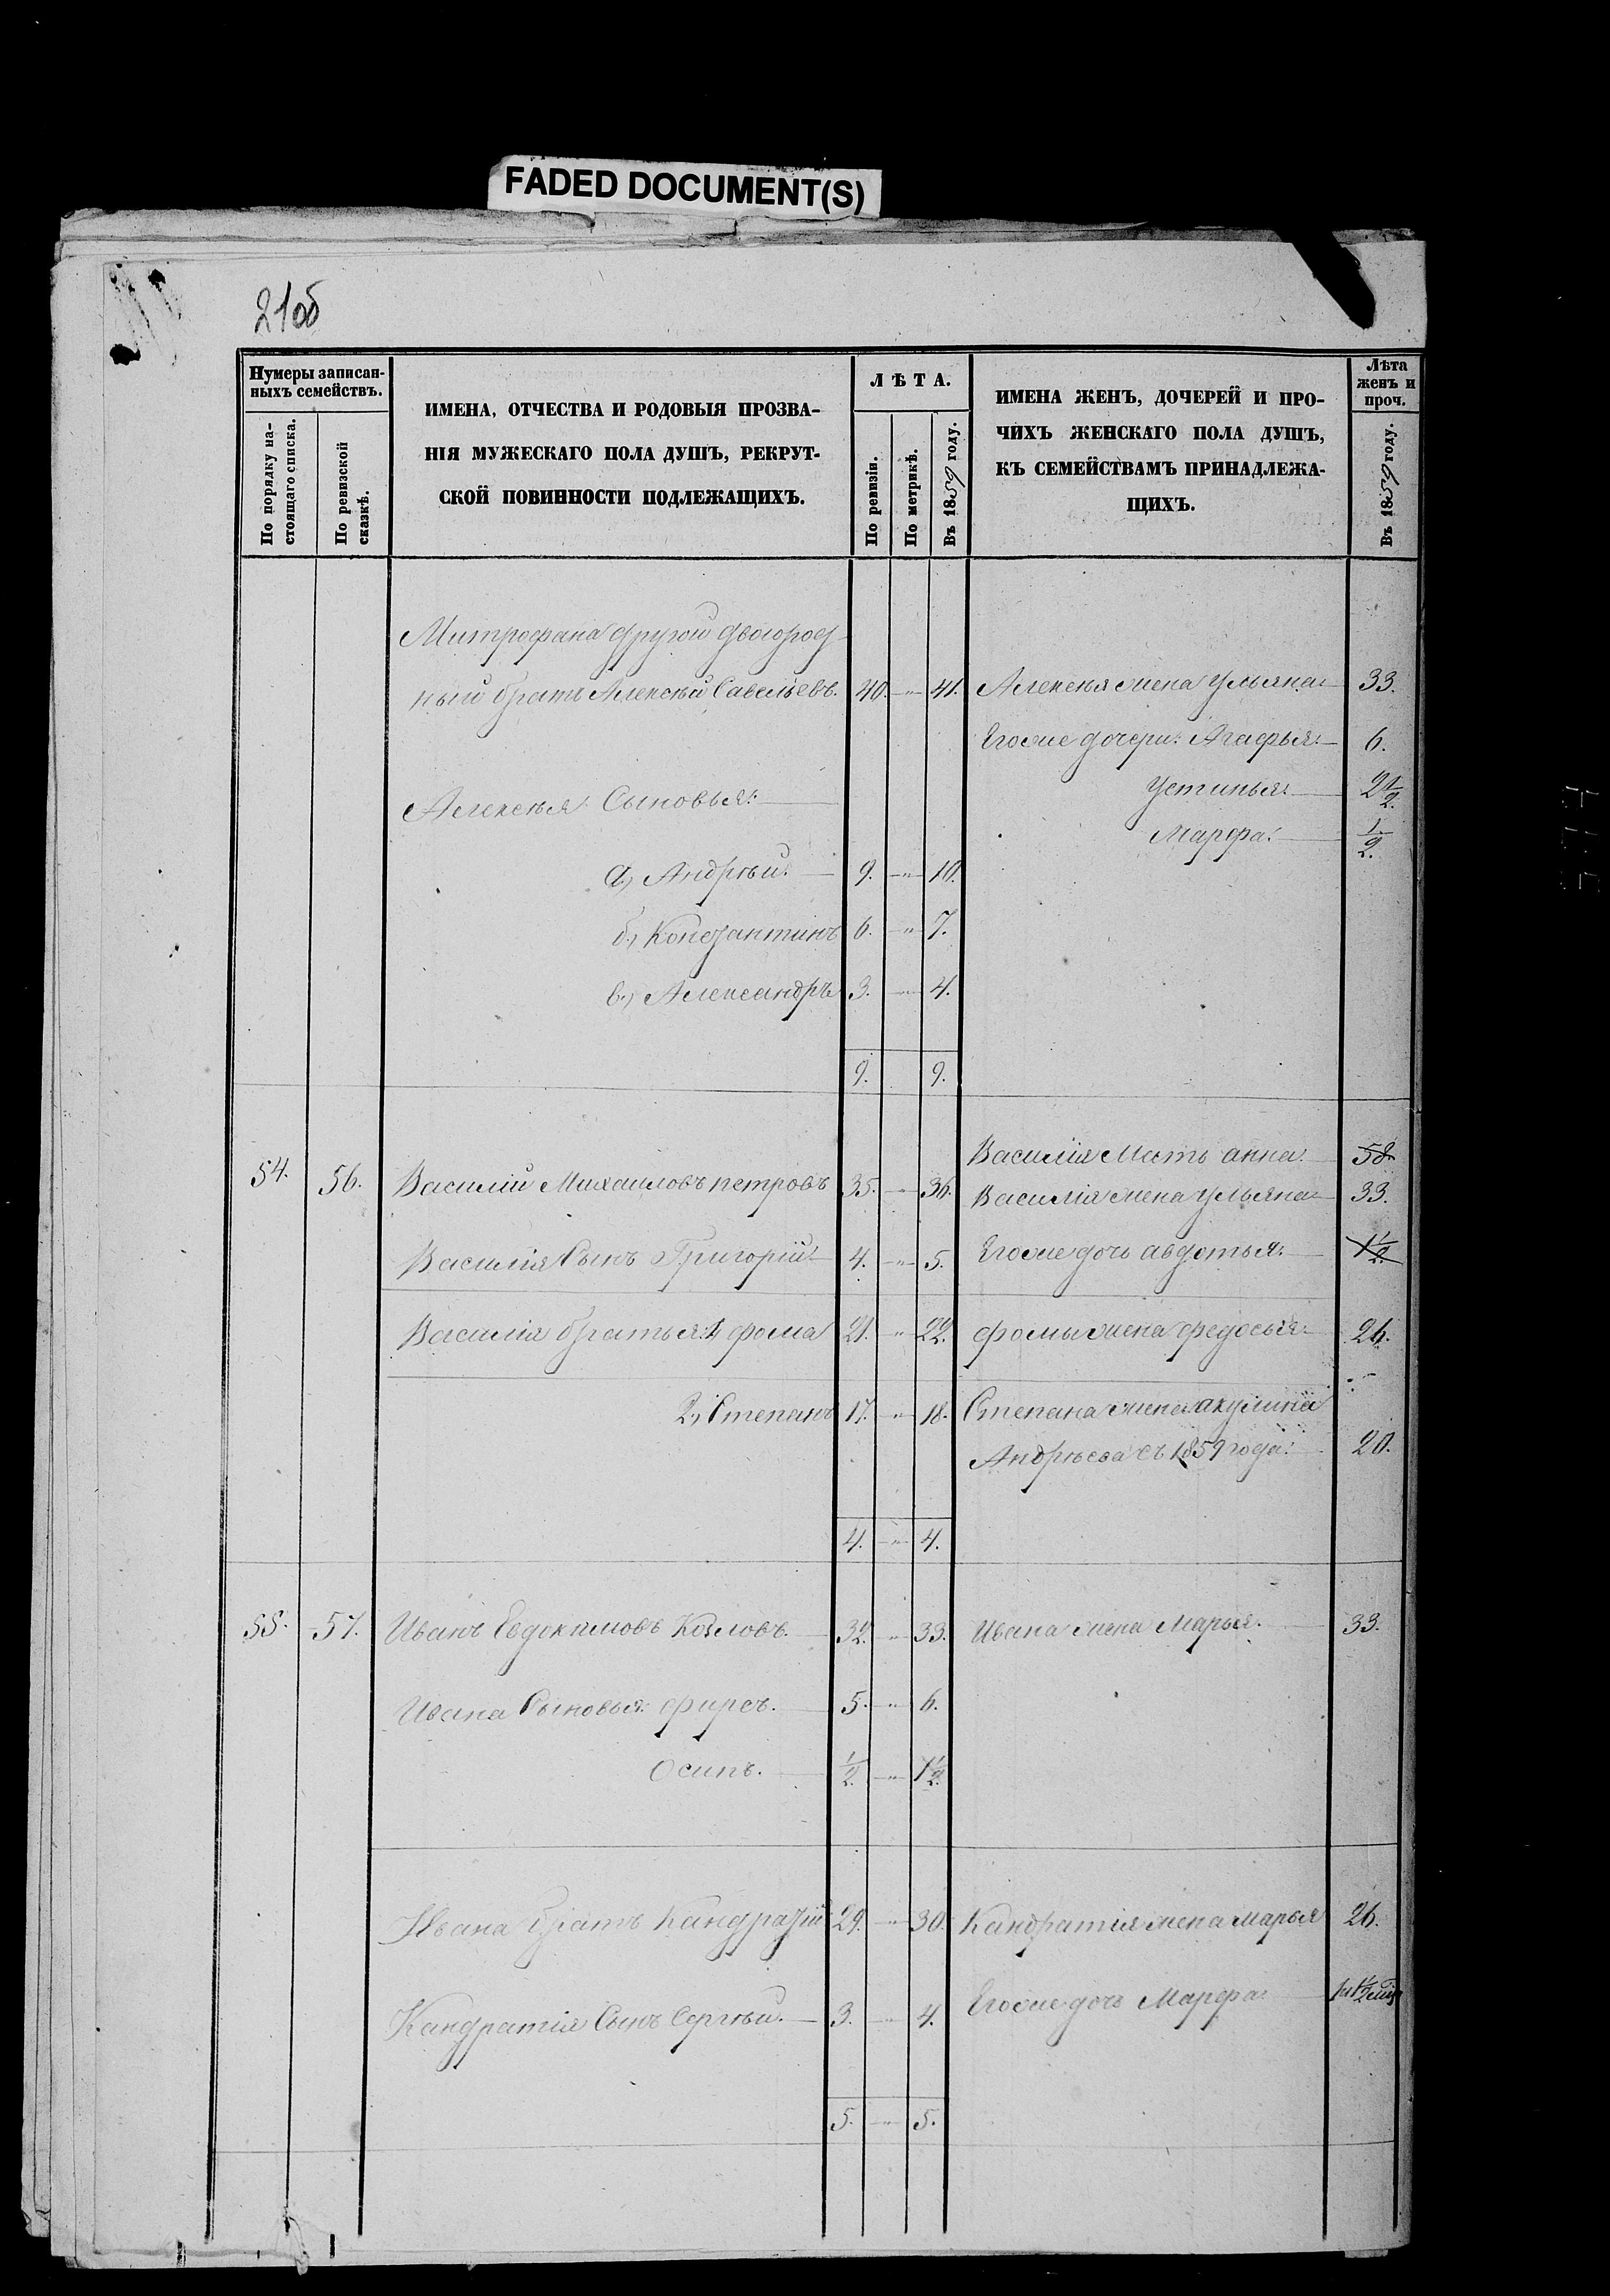 FADED DOCUMENT(S)
21об
Нумеры записан-
ныхъ семействъ.
По порядку на-
стоящаго списка.
По ревизской
сказкѣ.
ИМЕНА, ОТЧЕСТВА И РОДОВЫЯ ПРОЗВА-
НІЯ МУЖЕСКАГО ПОЛА ДУШЪ, РЕКРУТ-
СКОЙ ПОВИННОСТИ ПОДЛЕЖАЩИХЪ.
ЛѢТА.
По ревизіи.
По метрикѣ.
Въ 1859 году.
ИМЕНА ЖЕНЪ, ДОЧЕРЕЙ И ПРО-
ЧИХЪ ЖЕНСКАГО ПОЛА ДУШЪ,
КЪ СЕМЕЙСТВАМЪ ПРИНАДЛЕЖА-
ЩИХЪ.
Лѣта
женъ и
проч.
Въ 1859 году.
Митрофана другой двоюрод
ный братъ Алексѣй Савельевъ. 40. — " — 41. Алексѣя жена Ульяна — 33.
Егоже дочери: Агафья: — 6.
Устинья: — 2 1/2.
Алексѣя Сыновья: —
Марфа: — 1/2.
а.) Андрѣй: — 9. — " — 10.
б.) Констант​инъ 6. — " — 7.
в.) Александръ 3. — " — 4.
9. 9.
Василія Мать анна: — 58
54. 56. Василій Михаиловъ петровъ 35. — " — 36. Василія жена Ульяна — 33.
Василія Сынъ Григорій: — 4. — " — 5. Егоже дочь авдотья: — 1 1/2.
Василія братья: 1, фома 21. — " — 22. фомы жена федосья: — 26.
2.) Степанъ 17. — " — 18. Степана жена акулина
Андрѣева съ 1859 года: — 20.
4. — " — 4.
55. 57. Иванъ Евдокимовъ Козловъ. — 32. — " — 33. Ивана жена Марья. — 33.
Ивана Сыновья: фирсъ. — 5. — " — 6.
Осипъ. — 1/2. — " — 1 1/2.
Ивана братъ Кандратій 29. — " — 30. Кандратія жена Марья 26.
Кандратія Сынъ Сергѣй. — 3. — " — 4. Егоже дочь Марфа. —
5. — " — 5.